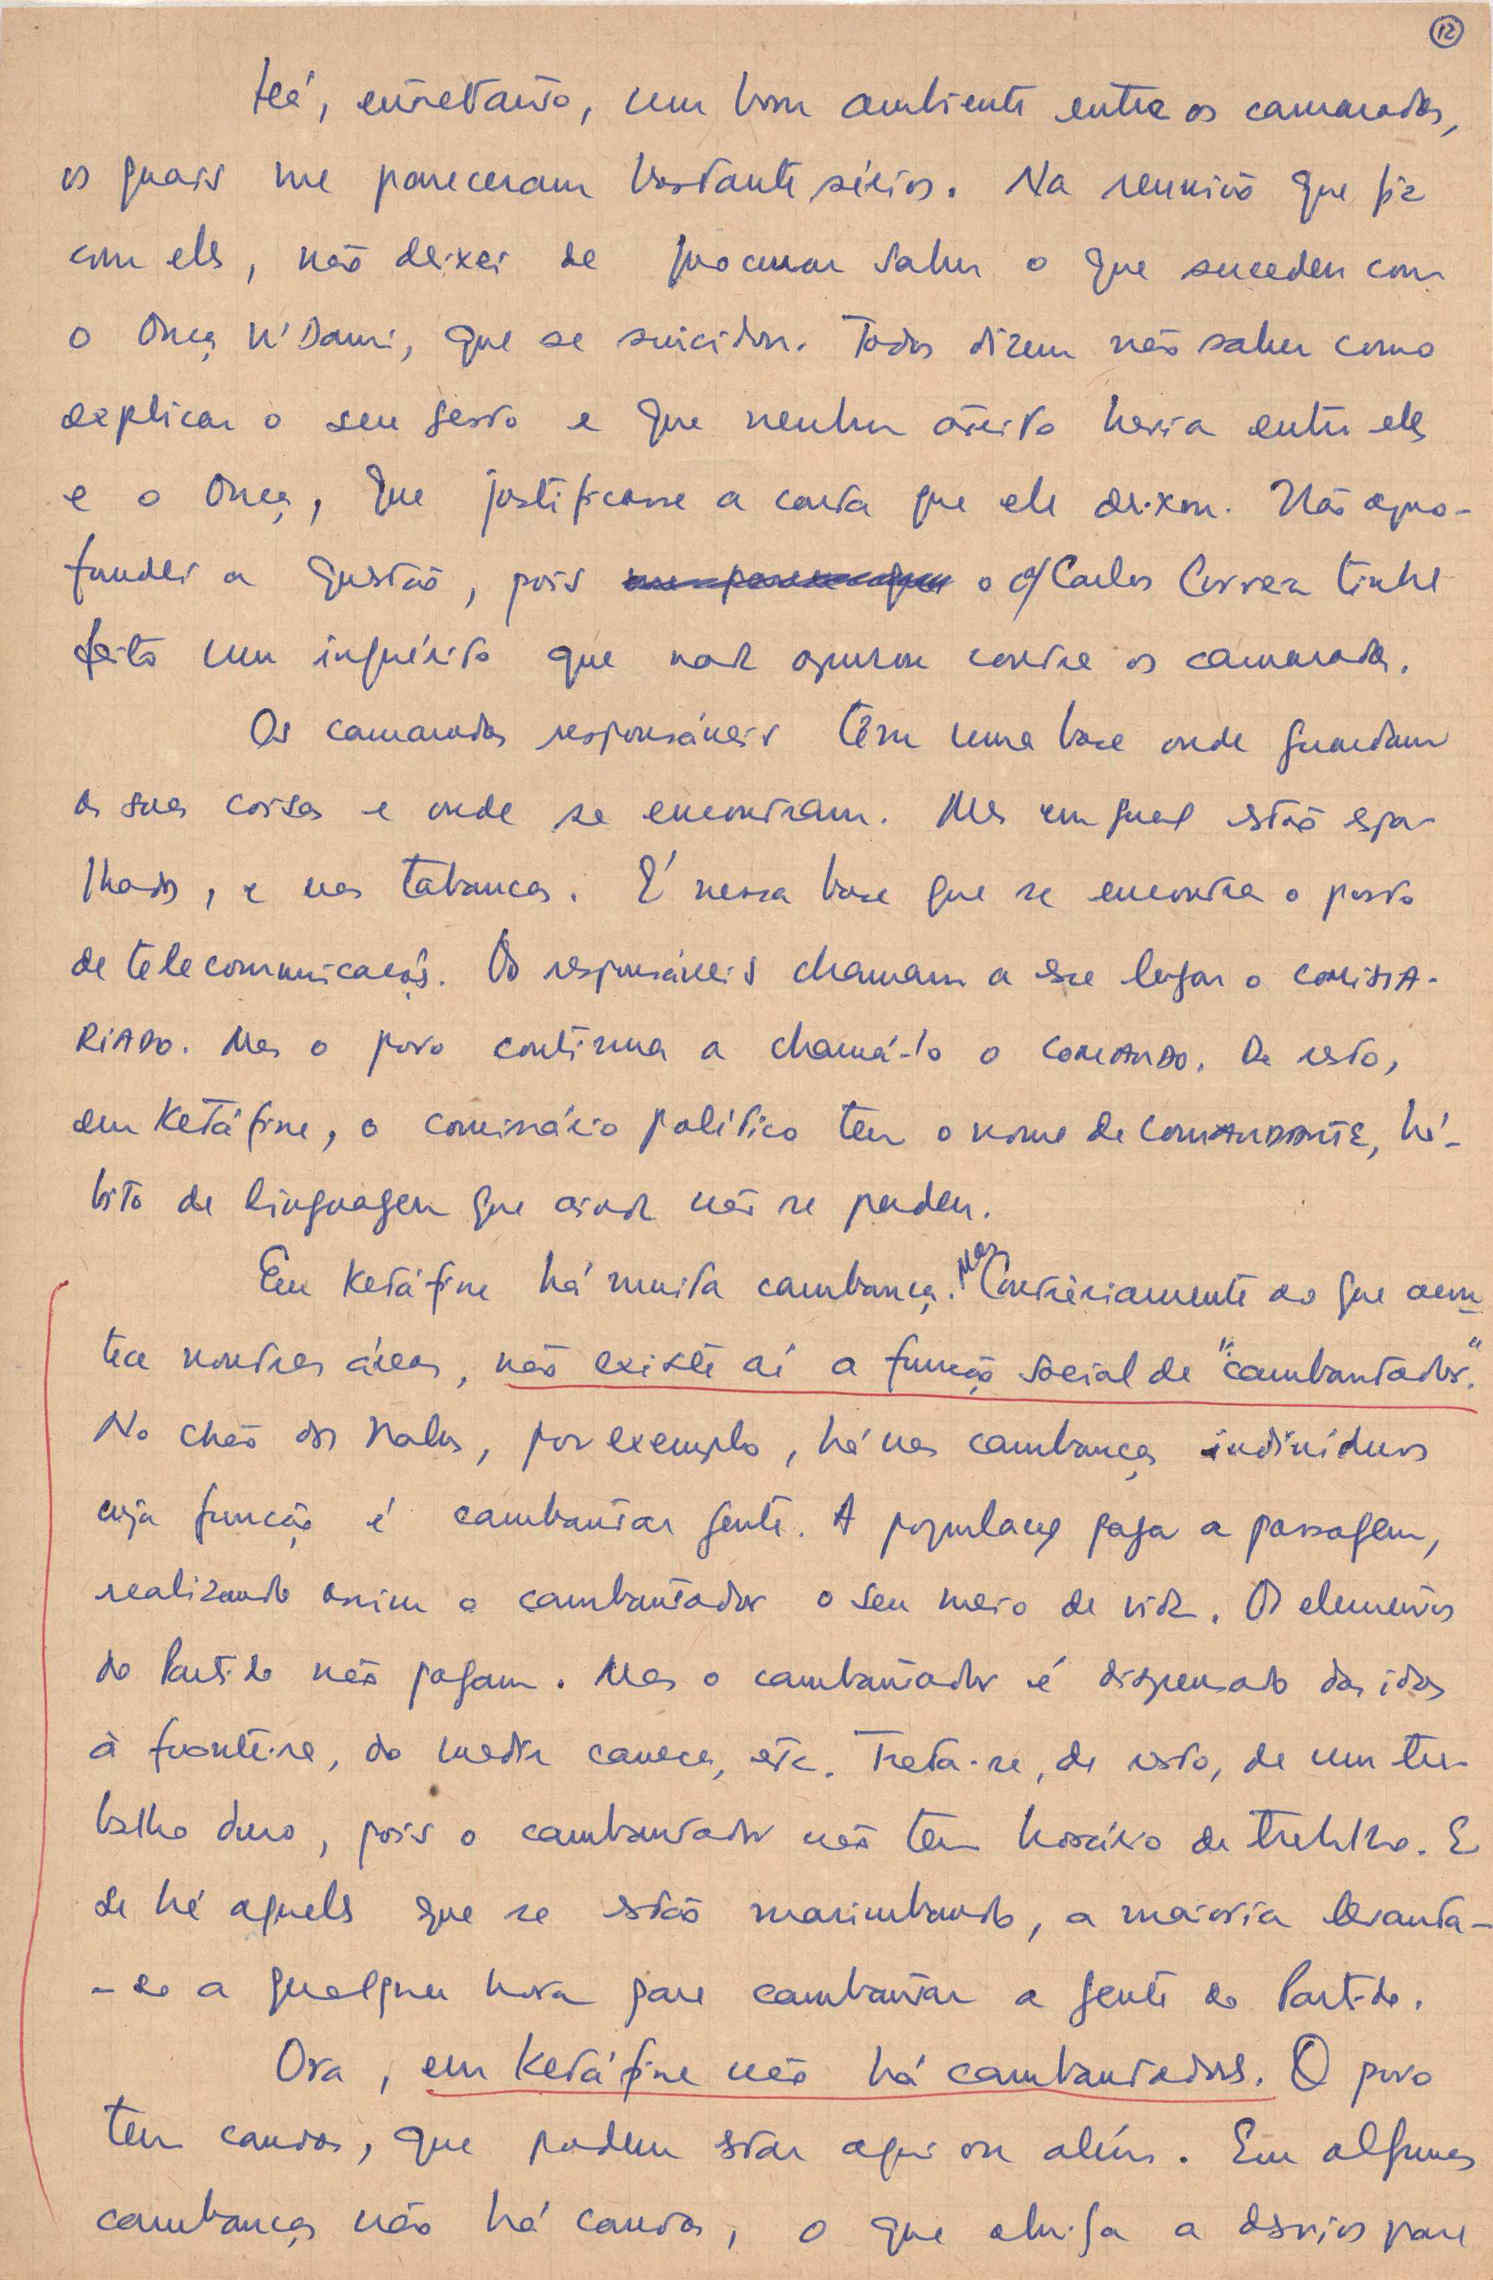 12
Há, entretanto, um bom ambiente entre os camaradas,
os quais me pareceram bastante sérios. Na reunião que fiz
com eles, não deixei de procurar saber o que sucedeu com
o Onça N'Dami, que se suicidou. Todos dizem não saber como
explicar o seu gesto e que nenhum atrito havia entre eles
e o Onça, que justificasse a carta que ele deixou. Não apro-
fundei a questão, pois o c/Carlos Correia tinha
feito um inquérito que nada apurou contra os camaradas.
Os camaradas responsáveis têm uma base onde guardam
as suas coisas e onde se encontram. Mas em geral estão espa-
lhados, e nas tabancas. É nessa base que se encontra o posto
de telecomunicações. Os responsáveis chamam a esse lugar o COMISSA-
RIADO. Mas o povo continua a chamá-lo o COMANDO. De resto,
em Ketáfine, o comissário político tem o nome de COMANDANTE, há-
bito de linguagem que ainda não se perdeu.
Em Ketáfine há muita cambança. Mas Contràriamente ao que acon-
tece noutras áreas, não existe aí a função social de "cambantador".
No chão dos Nalus, por exemplo, há nas cambanças indivíduos
cuja função é cambantar gente. A população paga a passagem,
realizando assim o cambantador o seu meio de vida. Os elementos
do Partido não pagam. Mas o cambantador é dispensado das idas
à fronteira, da media caneca, etc. Trata-se, de resto, de um tra-
balho duro, pois o cambantador não tem horário de trabalho. E
se há aqueles que se estão marimbando, a maioria levanta-
-se a qualquer hora para cambantar a gente do Partido.
Ora, em Ketáfine não há cambantadores. O povo
tem canoas, que podem estar aqui ou além. Em algumas
cambanças não há canoas, o que obriga a desvios para